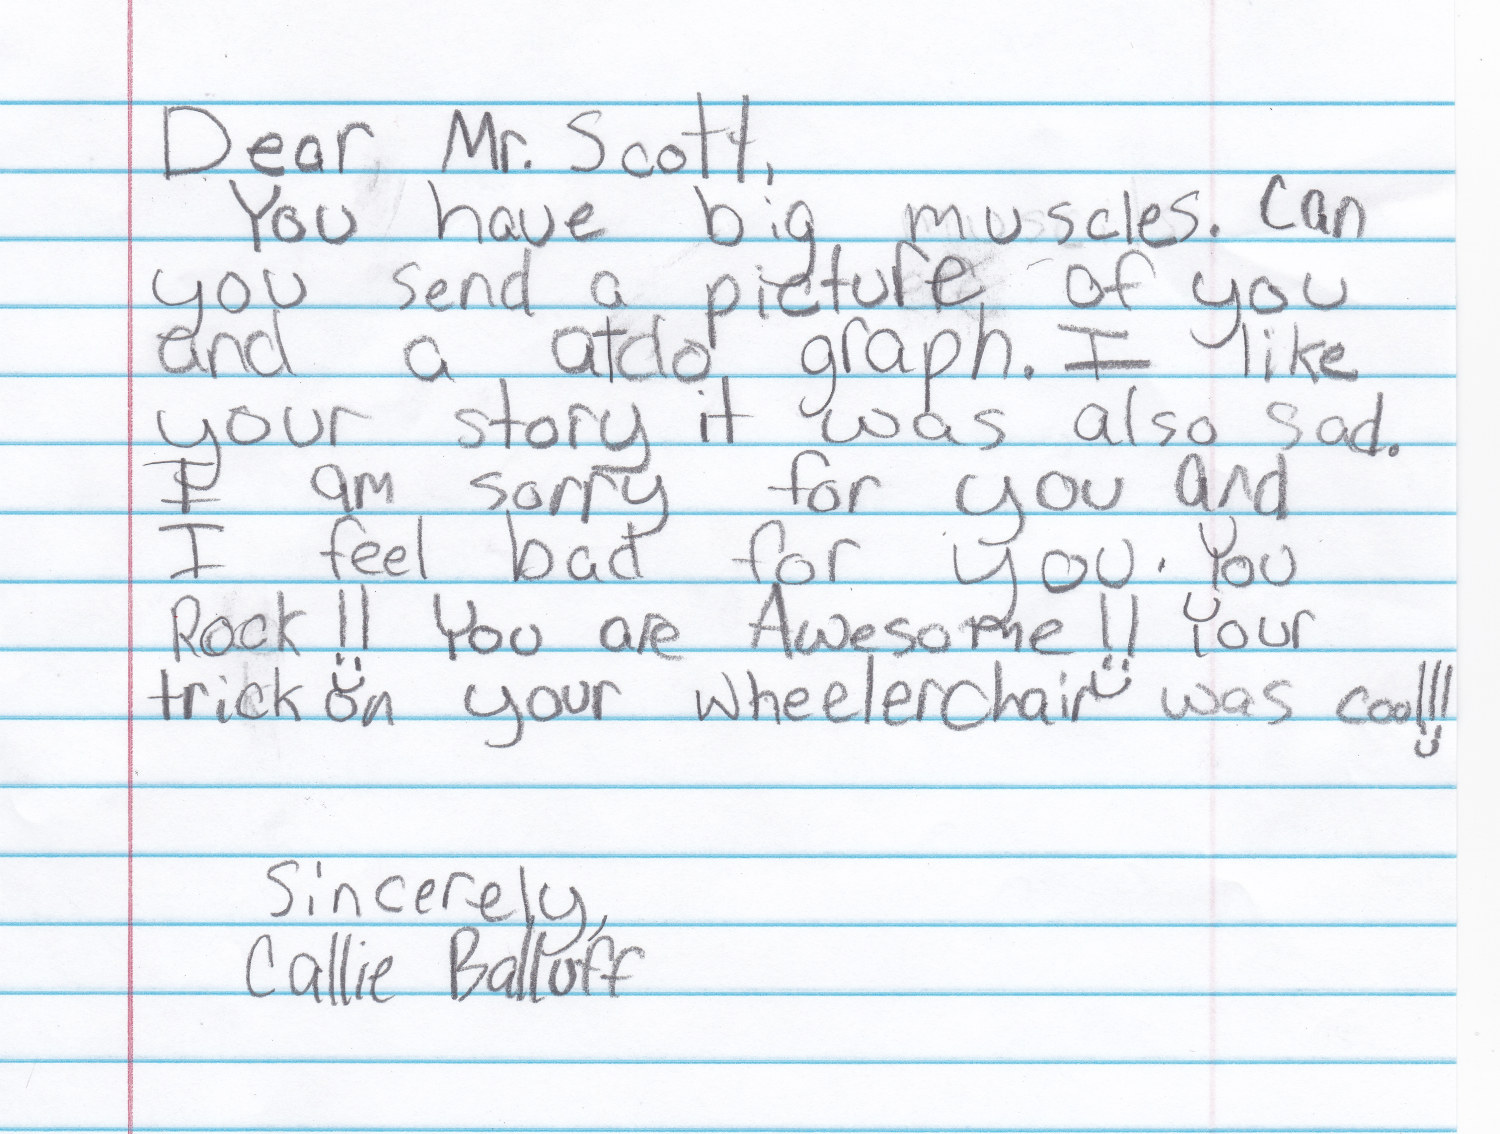 Dear, Mr. Scott,
You have big muscles. Can
you send a picture of you
and a atdo graph. I like
your story it was also sad.
I am sorry for you and
I feel bad for you. You
Rock!! You are Awesome!! Your
trick on your wheelerchair was cool!!!
Sincerely,
Callie Balluff